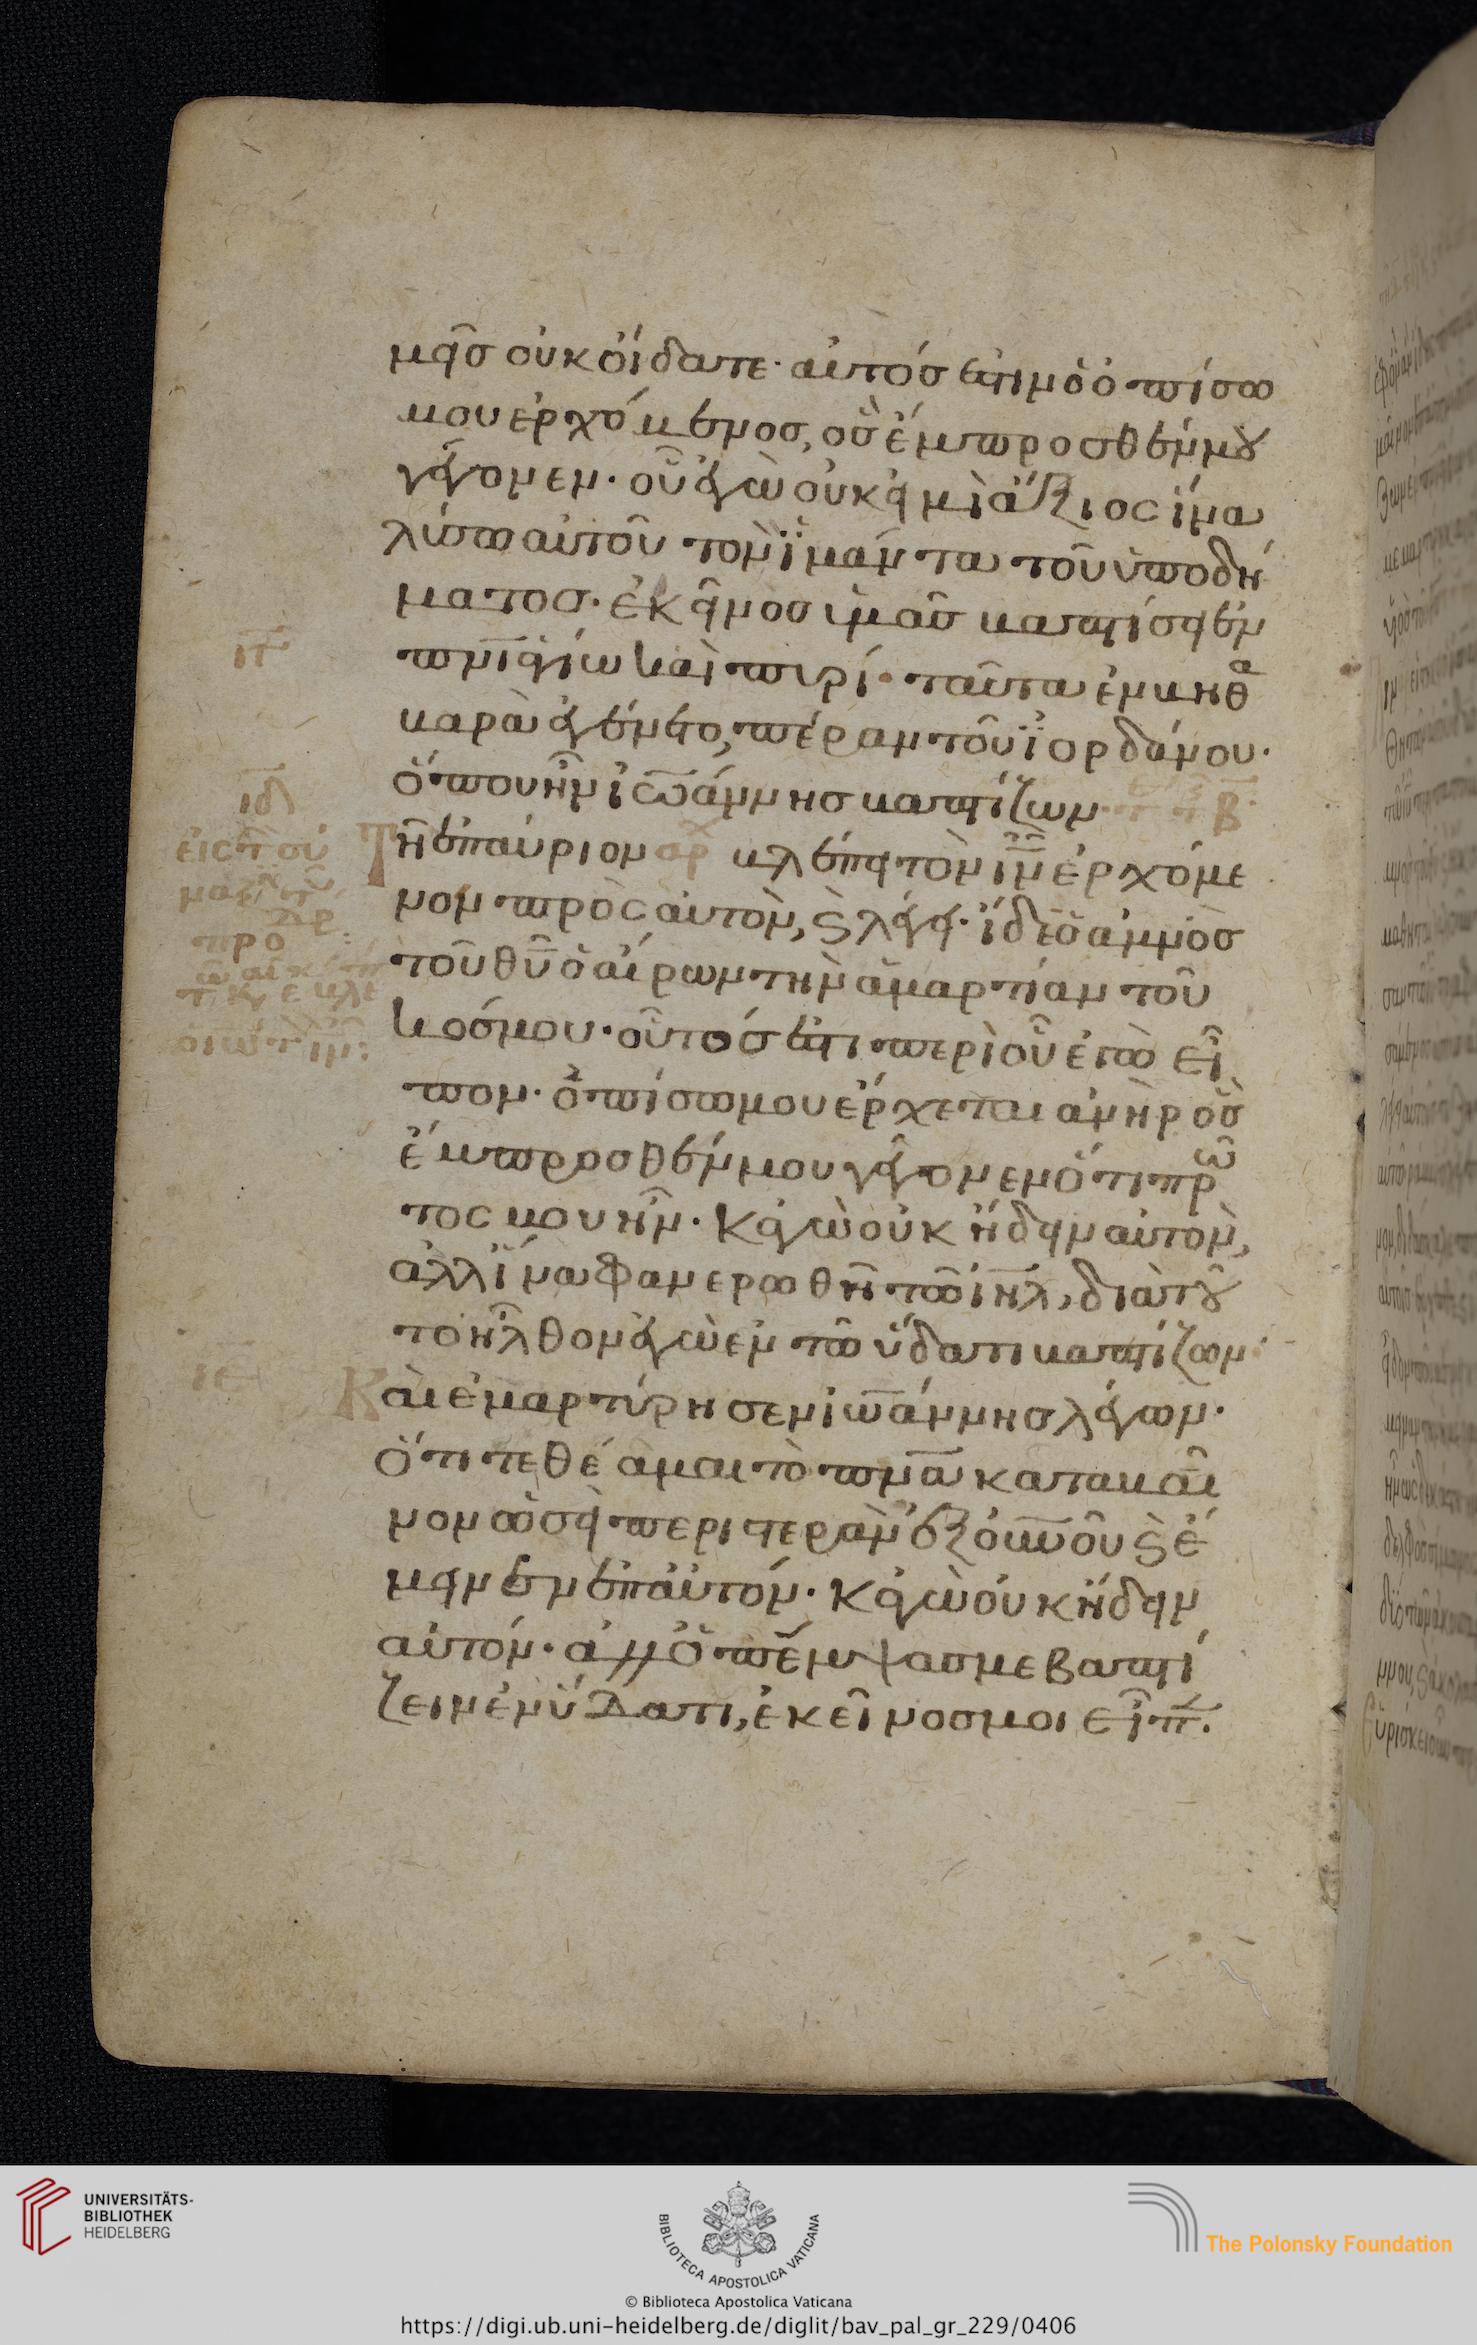 μεῖς οὐκ οἴδατε· αὐτός ἐστιν ὁ ὀπίσω
μου ἐρχόμενος, ὃς ἔμπροσθέν μου
γέγονεν· οὗ ἐγὼ οὐκ εἰμὶ ἄξιος ἵνα
λύσω αὐτοῦ τὸν ἱμάντα τοῦ ὑποδή
ματος· ἐκεῖνος ὑμᾶς βαπτίσει ἐν
πνι ἁγίω καὶ πυρί· ταῦτα ἐν βηθα
βαρὰ ἐγένετο, πέραν τοῦ ϊορδάνου·
ὅπου ἦν ἰωάννης βαπτίζων·
Τῆ ἐπαύριον βλέπει τὸν ιν ἐρχόμε
νον πρὸς αὐτὸν, ϗ λέγει· ἴδε ὁ ἀμνὸς
τοῦ θυ ὁ αἴρων τὴν ἁμαρτίαν τοῦ
κόσμου· οὗτός ἐστι περὶ οὗ ἐγὼ εἶ
πον· ὀπίσω μου ἔρχεται ἀνὴρ ὃς
ἔμπροσθέν μου γέγονεν ὅτι πρῶ
τος μου ἦν· Κἀγὼ οὐκ ἤδειν αὐτὸν,
ἀλλ ἵνα φανερωθῆ τῶ ιηλ, διὰ τοῦ
το ἦλθον ἐγὼ ἐν τῶ ὕδατι βαπτίζων·
Καὶ ἐμαρτύρησεν ἰωάννης λέγων·
ὅτι τεθέαμαι τὸ πνα καταβαῖ
νον ὡσεὶ περιστερὰν ἐξ ουνου ϗ ἔ
μεινεν ἐπ αὐτόν· Κἀγὼ οὐκ ἤδειν
αὐτόν· ἀλλ ὁ πέμψας με βαπτί
ζειν ἐν ὕδατι, ἐκεῖνος μοι εἶπ·
ιδ
ιε
UNIVERSITÄTS-
BIBLIOTHEK
HEIDELBERG
BIBLIOTECA APOSTOLICA VATICANA
© Biblioteca Apostolica Vaticana
The Polonsky Foundation
https://digi.ub.uni-heidelberg.de/diglit/bav_pal_gr_229/0406